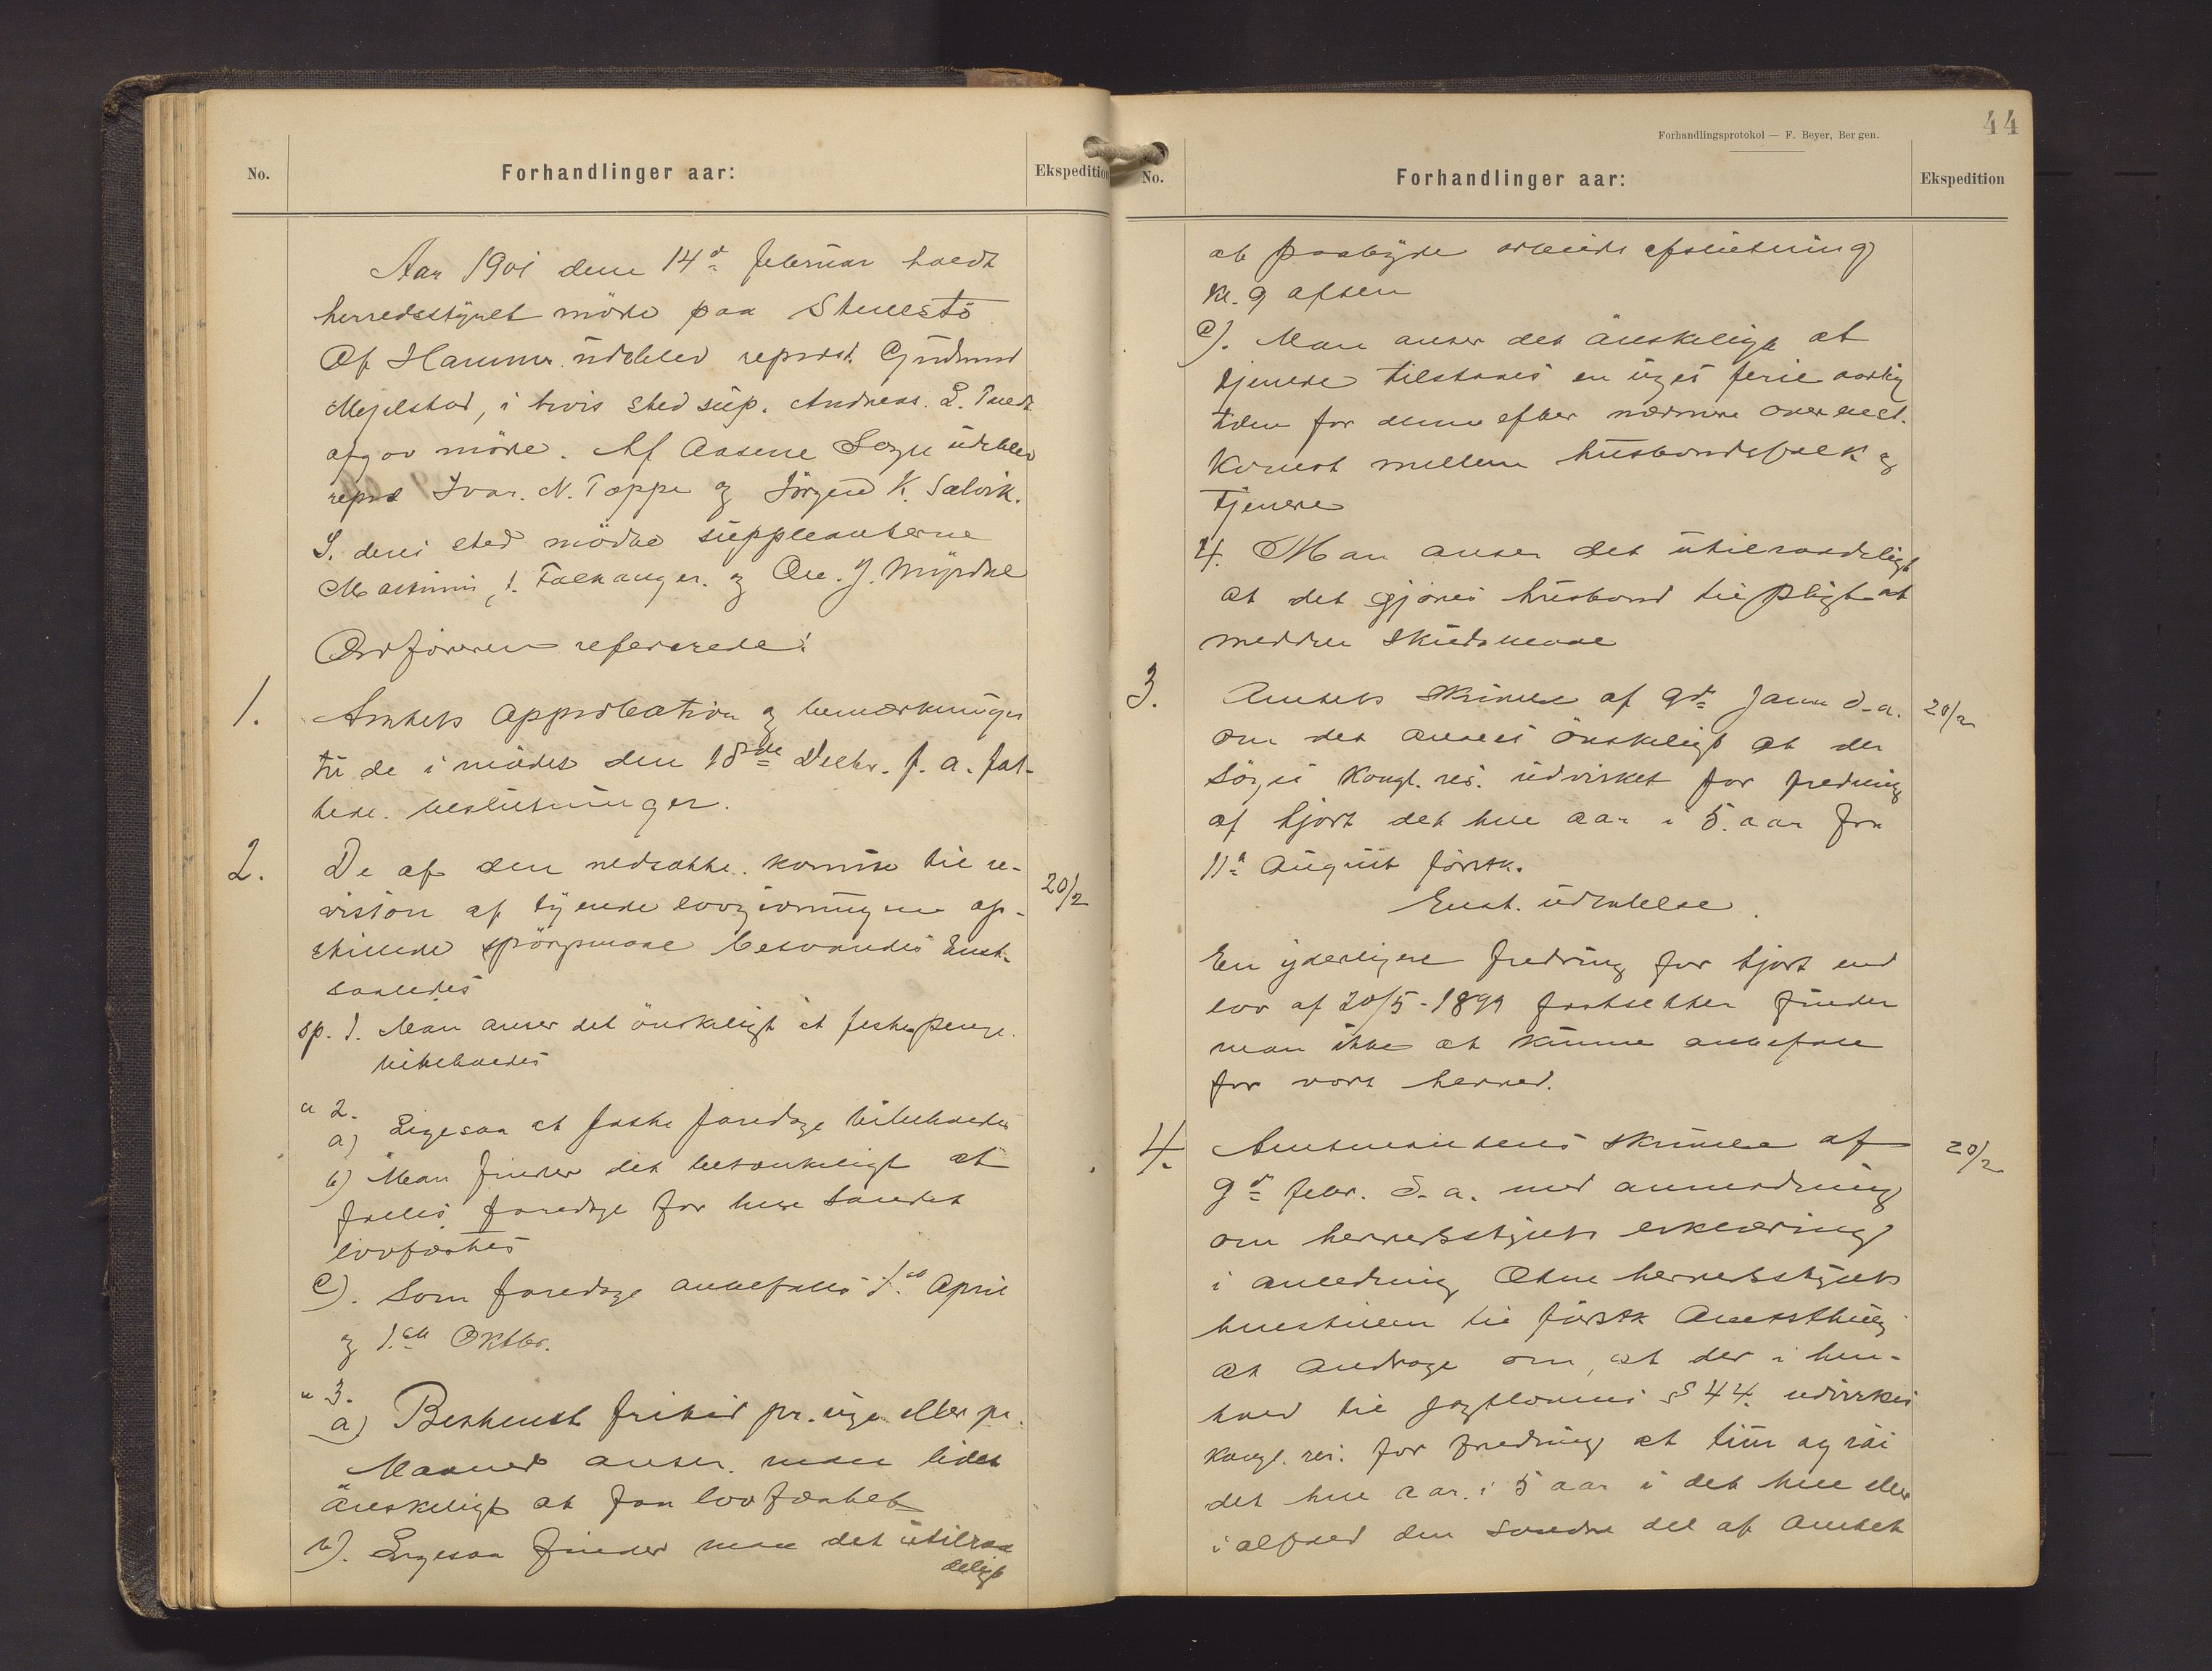 No.
Forhandlinger aar:
Ekspedition
Aar 1901 den 14d februar holdt
herredsstyret møde paa Stenestø
Af Hammer udeblev represt. Gudmund
Mjelstad, i hvis sted sup. Andreas. L. Tuedt
afgav møde. Af Aasene Sogn udeblev
reprs Ivar. N. Toppe og Jørgen K. Salvik.
I. deres sted mødte suppleanterne
J. Falkanger. og Ole. J. Myrdal
Ordføreren refererede:
1. Amtets approbation og bemærkninger
til de i mødet den 18de Decbr. f. a. fat-
tede. beslutninger.
2. De af den nedsatte. komite til re-
20/2
vision af tyende lovgivningen op-
stillede spørgsmaal besvaredes Enst.
saaledes
sp. 1. Man anser det ønskeligt at festepenge.
bibeholdes
" 2.
a) Ligesaa at faste faredage bibeholdes
b) Man finder det betænkeligt at
fælles faredage for hele landet
lovfæstes
c). Som faredage anbefales 1ste April
og 1ste Oktbr.
" 3.
a) Bestemt fritid pr. uge eller pr.
Maaned anser. man lidet
ønskeligt at faa lovfæstet
b). Ligesaa finder man det utilraa
deligt
44
Forhandlingsprotokol — F. Beyer, Bergen.
No.
Forhandlinger aar:
Ekspedition
at paabyde arbeids afslutning
kl. 9 aften
c). Man anser det ønskeligt at
tjenere tilstaaes en uges ferie aarlig
tiden for denne efter nærmere overenst.
komst mellem husbondsfolk og
tjenere
4. Man anser det utilraadeligt
at det gjøres husbond til pligt at
meddele skudsmaal
3. Amtets skrivelse af 9de Janu d. a.
20/2
om det ansees ønskeligt at der
søges kongl. res. udvirket for fredning
af hjort det hele aar i 5. aar fra
11te August førstk.
Enst. udtalelse.
En yderligere fredning for hjort end
lov af 20/5-1899 fastsetter finder
man ikke at kunne anbefale
for vort herred.
4. Amtmandens skrivelse af
20/2
9de febr. d. a. med anmodning
om herredsstyrets erklæring
i anledning Etne herredsstyrets
beslutning til førstk Amtsthing
at andrage om, at der i hen-
hold til jagtlovens § 44. udvirkes
kongl. res. for fredning at tiur og røi
det hele aar. i 5 aar i det hele eller
i alfald den søndre del af Amtet